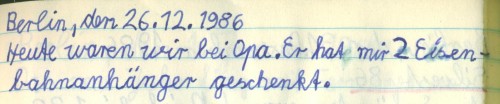 Berlin, den 26.12.1986
Heute waren wir bei Opa. Er hat mir 2 Eisen-
bahnanhänger geschenkt.